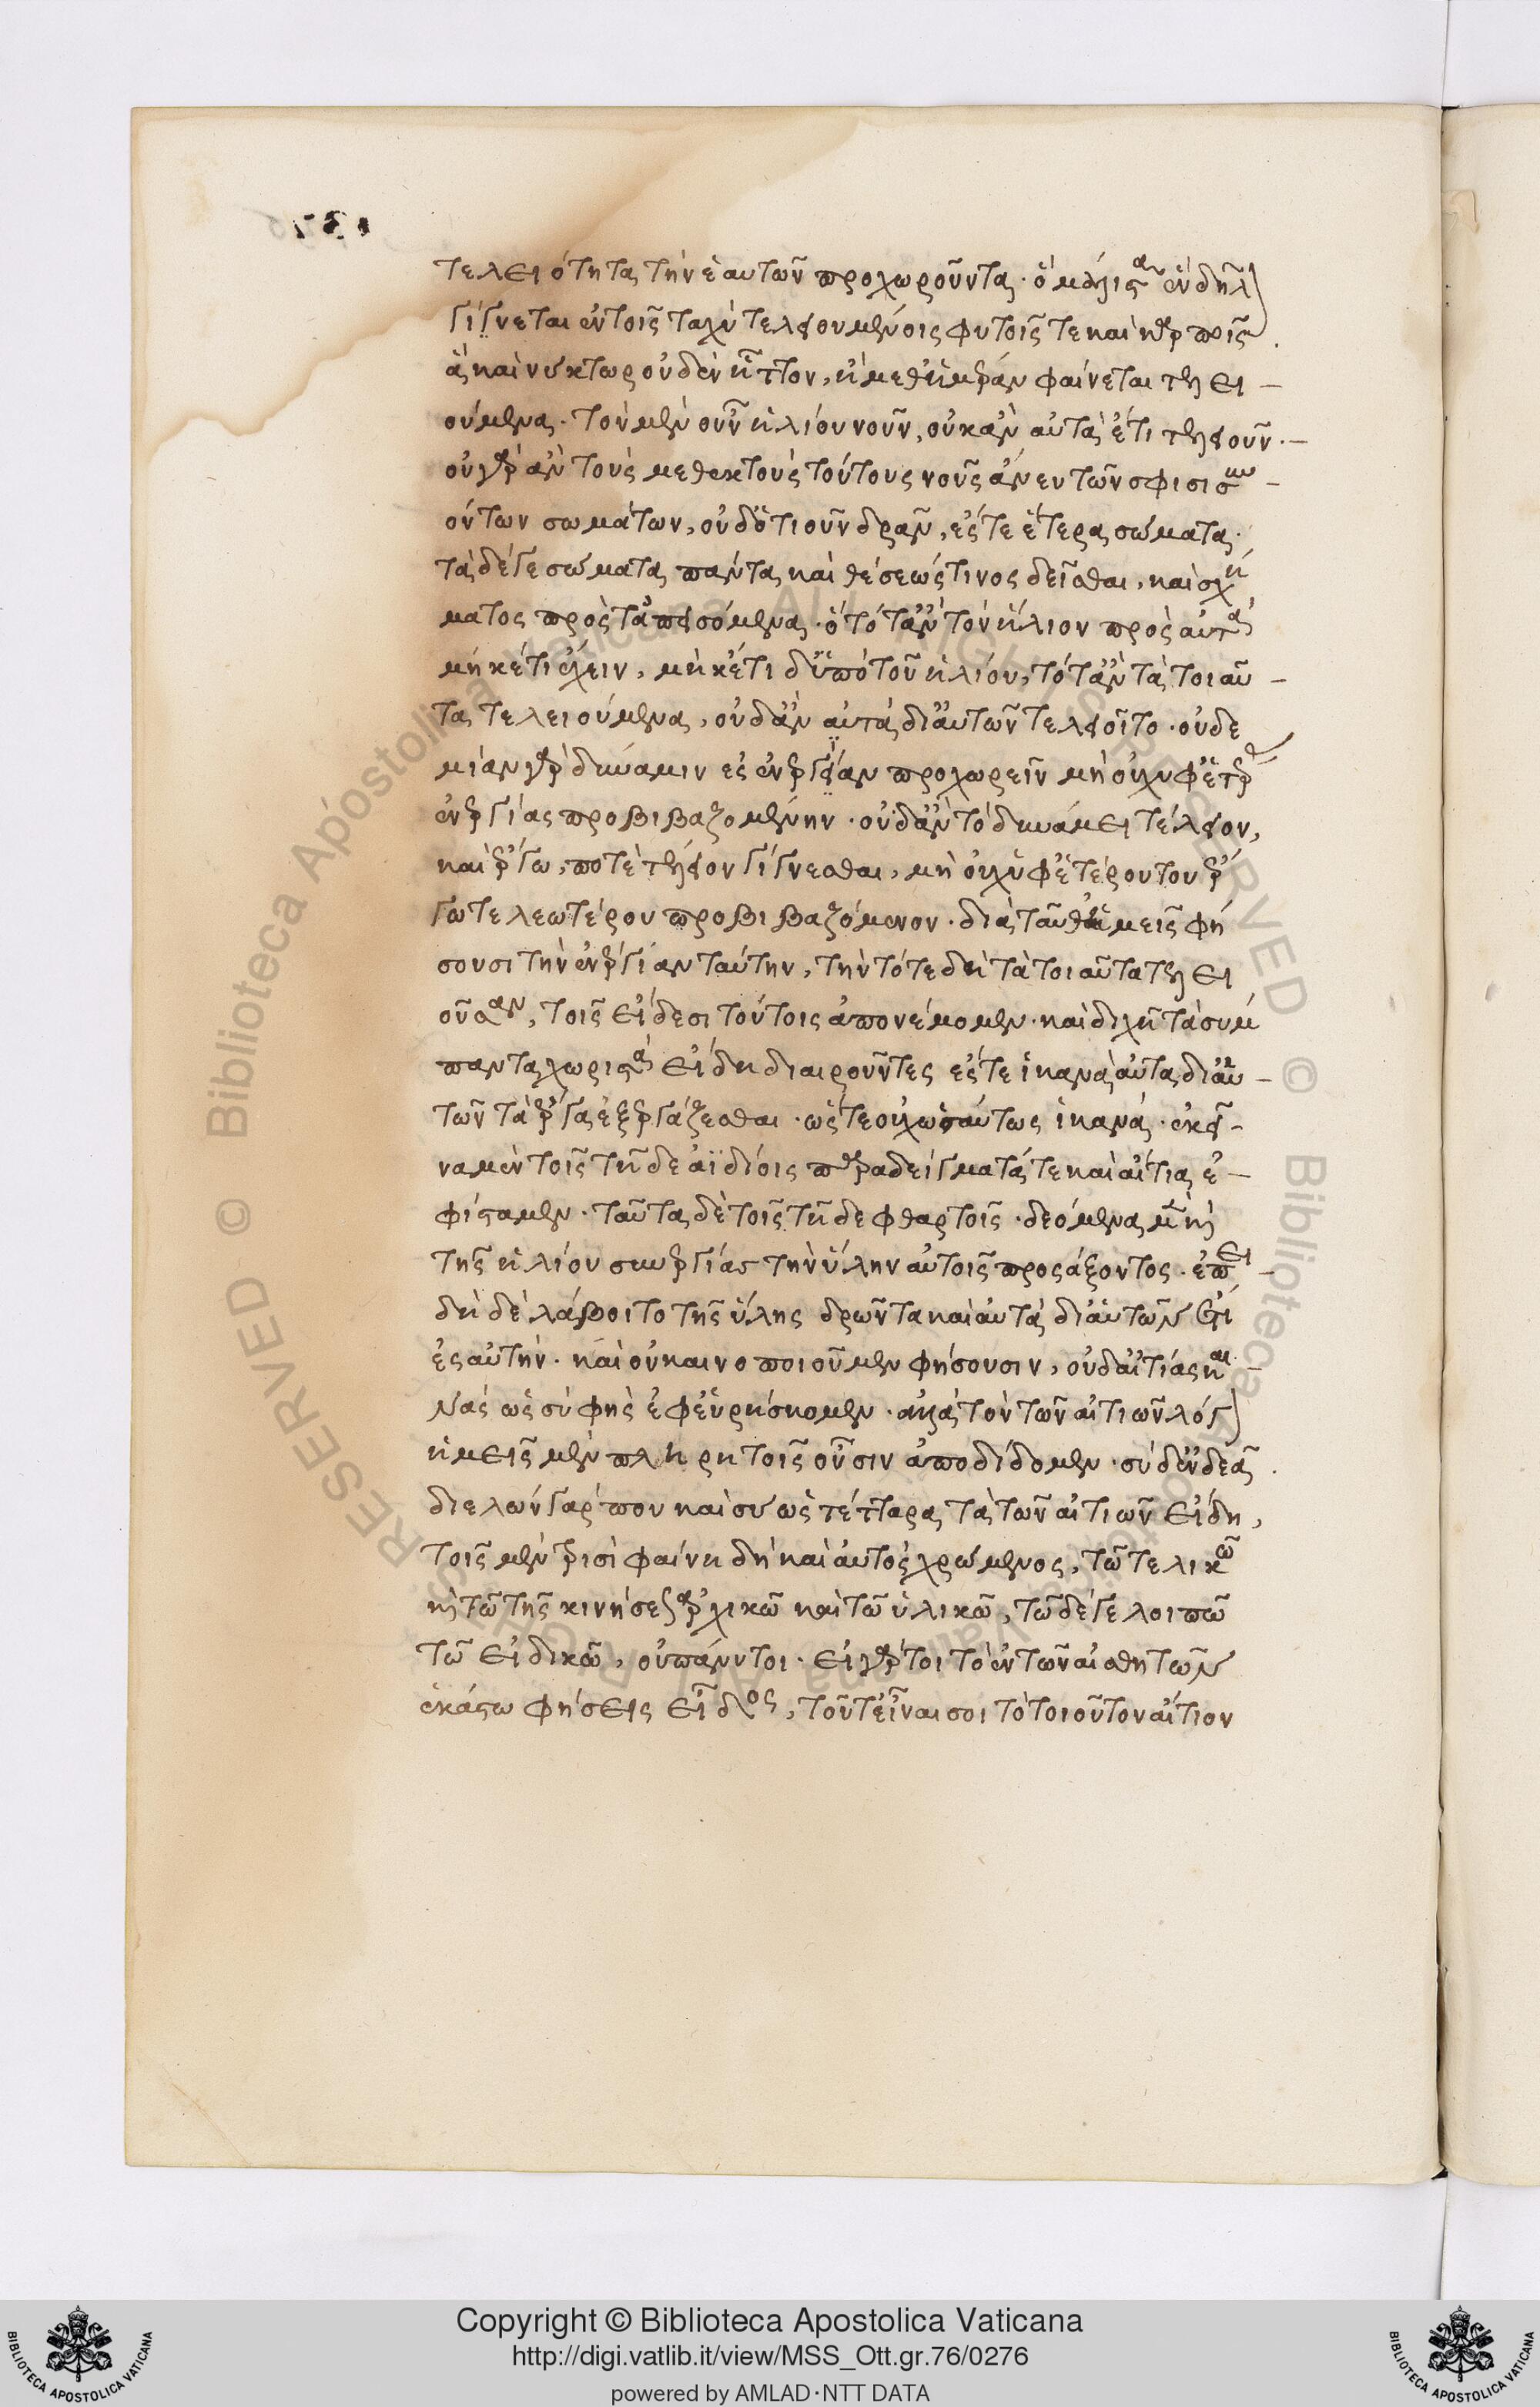 τελειότητα τὴν ἑαυτῶν προχωροῦντα· ὃ μάλιστα ἔνδηλ
γίγνεται ἐν τοῖς ταχὺ τελειουμένοις φυτοῖς τε καὶ καρποῖς.
ἃ καὶ νύκτωρ οὐδὲν ἧττον, ἢ μεθημέραν φαίνεται τελει-
ούμενα. τὸν μὲν οὖν ἡλίου νοῦν, οὐκ ἂν αὐτὰ ἔτι τελειοῦν.-
οὐ γὰρ ἂν τοὺς μεθεκτοὺς τούτους νοῦς ἄνευ τῶν σφίσι συν-
όντων σωμάτων, οὐδ' ὁτιοῦν δρᾶν, ἔς τε ἕτερα σώματα.
τὰ δέ γε σώματα πάντα καὶ θέσεώς τινος δεῖσθαι, καὶ σχή
ματος πρὸς τἀ πεισόμενα. ὃ τότ' ἂν τὸν ἥλιον πρὸς αὐτὰ
μηκέτι ἔχειν, μηκέτι δ' ὑπὸ τοῦ ἡλίου, τότ' ἂν τὰ τοιαῦ-
τα τελειούμενα, οὐδ' ἂν αὐτὰ δι' αὑτῶν τελειοῖτο. οὐδε
μίαν γὰρ δύναμιν ἐς ἐνέργειαν προχωρεῖν μὴ οὐχ ὑφ' ἑτέρας
ἐνεργίας προβιβαζομένην. οὐδ' ἂν τὸ δυνάμει τέλειον,
καὶ ἔργω, ποτὲ τέλειον γίγνεσθαι, μὴ οὐχ ὑφ' ἑτέρου του ἔρ
γω τελεωτέρου προβιβαζόμενον. διὰ ταῦθ' ἡμεῖς φή
σουσι τὴν ἐνέργίαν ταύτην, τὴν τότε δὴ τὰ τοιαῦτα τελει
οῦσαν, τοῖς εἴδεσι τούτοις ἀπονέμομεν. καὶ διχῆ τὰ σύμ
παντα χωριστὰ εἴδη διαιροῦντες ἔς τε ἱκανὰ αὐτὰ δι' αὑ-
τῶν τὰ ἔργα ἐξεργάζεσθαι. ὥς τε οὐχ ὡσαύτως ἱκανά. ἐκεῖ-
να μὲν τοῖς τῆδε ἀϊδίοις παραδείγματά τε καὶ αἴτια ἐ-
φίσταμεν. ταῦτα δὲ τοῖς τῆδε φθαρτοῖς. δεόμενα μὲν καὶ
τῆς ἡλίου συνεργίας τὴν ὕλην αὐτοῖς προσάξοντος. ἐπει-
δὴ δὲ λάβοιτο τῆς ὕλης δρῶντα καὶ αὐτὰ δι' αὑτῶν ἔτι
ἐς αὐτήν. καὶ οὐ καινοποιοῦμεν φήσουσιν, οὐδ' αἰτίας και-
νὰς ὡς σὺ φὴς ἐφευρήσκομεν. ἀλλὰ τὸν τῶν αἰτιῶν λόγ
ἡμεῖς μὲν πλήρη τοῖς οὖσιν ἀποδίδομεν. σὺ δ' ἐνδεᾶ.
διελὼν γάρ που καὶ σὺ ὡς τέτταρα τὰ τῶν αἰτιῶν εἴδη,
τοῖς μὲν τρισὶ φαίνη δὴ καὶ αὐτὸς χρώμενος, τῶ τελικῶ
καὶ τῶ τῆς κινήσεως ἀρχικῶ καὶ τῶ ὑλικῶ, τῶ δέ γε λοιπῶ
τῶ εἰδικῶ, οὐ πάνυ τοι. εἰ γάρ τοι τὸ ἐν τῶν αἰσθητῶν
ἑκάστω φήσεις εἶδος, τοῦτ' εἶναι σοι τὸ τοιοῦτον αἴτιον
Copyright © Biblioteca Apostolica Vaticana
http://digi.vatlib.it/view/MSS_Ott.gr.76/0276
powered by AMLAD·NTT DATA